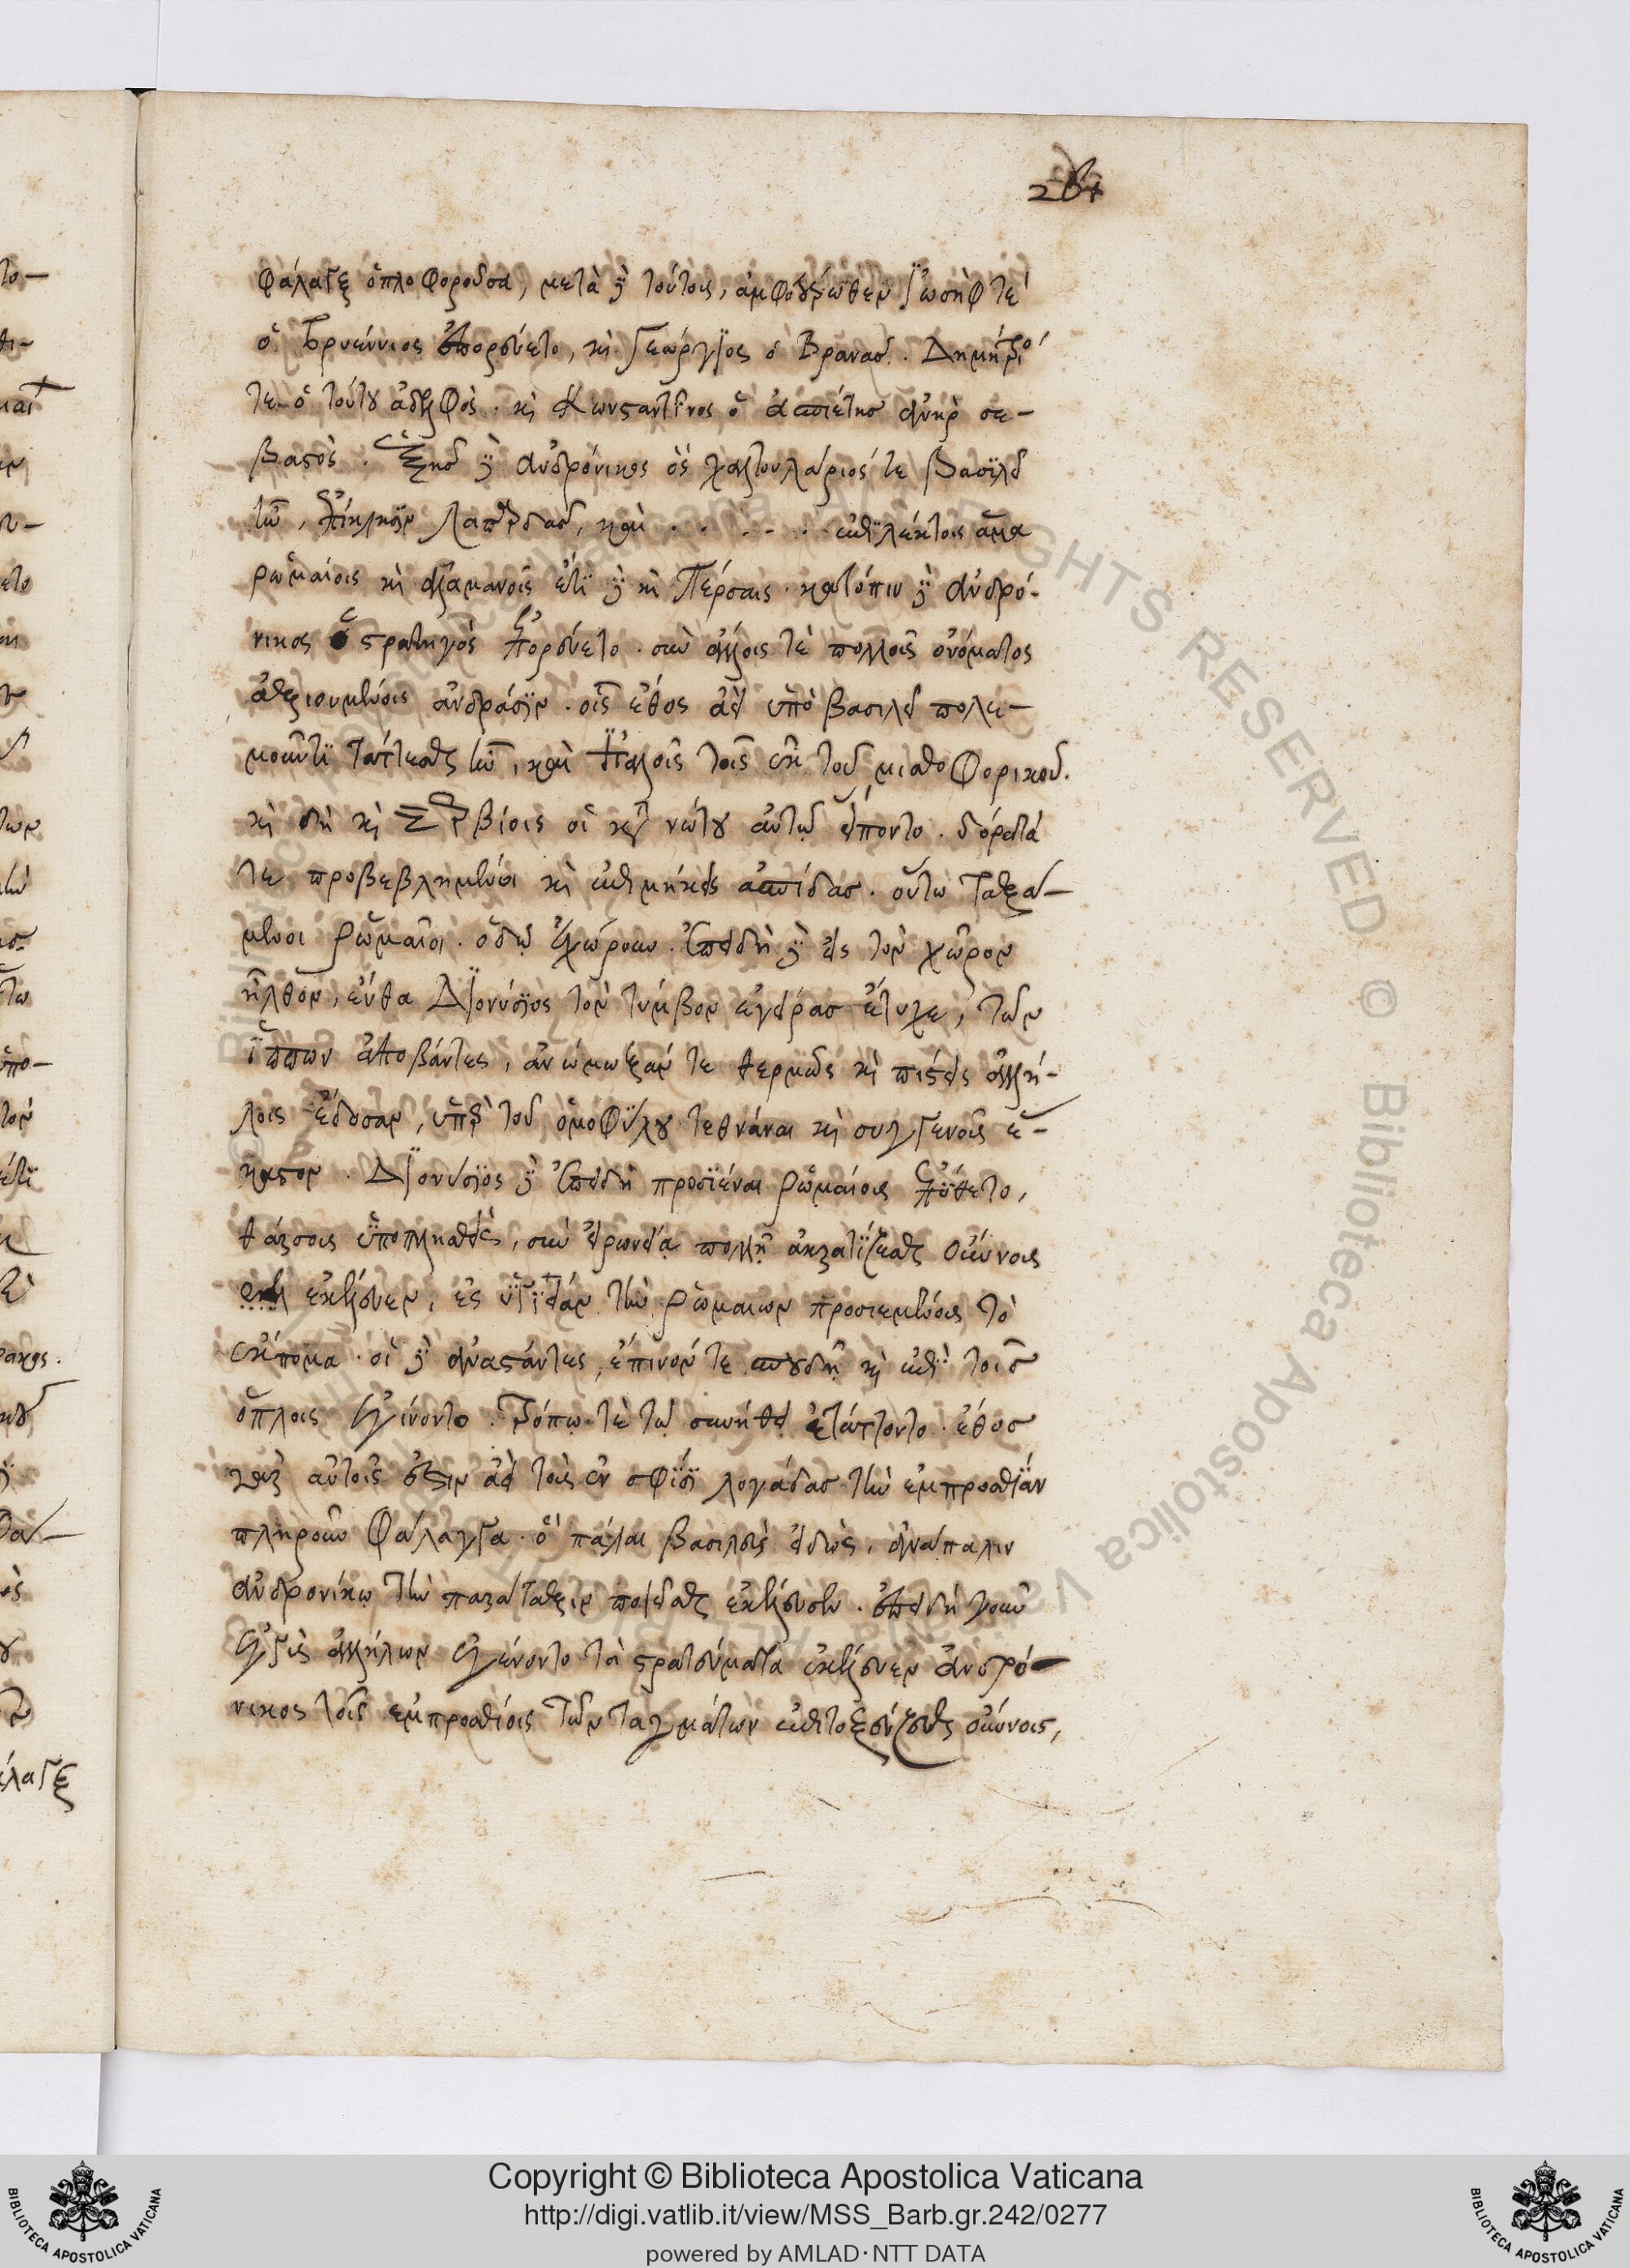 264
φάλαγξ ὁπλοφοροῦσα, μετὰ δὲ τούτοις, ἀμφοτέρωθεν Ἰωσήφ τε
ὁ Βρυέννιος ἐπορεύετο, καὶ Γεώργιος ὁ Βρανᾶς. Δημήτριός
τε ὁ τούτου ἀδελφὸς. καὶ Κωνσταντῖνος ὁ ἀσπιέτης ἀνὴρ σε-
βαστὸς. ἑξῆς δὲ ἀνδρόνικος ὃς χαρτουλάριός τε βασιλεῖ
ἦν, ἐπίκλησιν λαπαρδᾶς, καὶ . . . . . . ἐπιλέκτοις ἅμα
ρωμαίοις καὶ ἀλαμανοῖς ἔτι δὲ καὶ Πέρσαις. κατόπιν δὲ ἀνδρό-
νικος ὁ στρατηγὸς ἐπορεύετο. σὺν ἄλλοις τὲ πολλοῖς ὀνόματος
ἀξιουμένοις ἀνδράσιν. οἷς ἔθος ἀεὶ ὑπὸ βασιλεῖ πολε-
μοῦντι τάττεσθαι ἦν, καὶ ἰταλοῖς τοῖς ἐκ τοῦ μισθοφορικοῦ.
καὶ δὴ καὶ Σερβίοις οἳ κατὰ νώτου αὐτῷ εἵποντο. δόρατά
τε προβεβλημένοι καὶ ἐπιμήκεις ἀσπίδας. οὕτω ταξά-
μενοι ῥωμαῖοι. ὁδῷ ἐχώρουν. ἐπειδὴ δὲ εἰς τὸν χῶρον
ἦλθον, ἔνθα Διονύσιος τὸν τύμβον ἐγείρας ἔτυχε, τῶν
ἵππων ἀποβάντες, ἀνώμωξάν τε θερμῶς καὶ πίστεις ἀλλή-
λοις ἔδοσαν, ὑπὲρ τοῦ ὁμοφύλου τεθνάναι καὶ συγγενοῦς ἕ-
καστον. Διονύσιος δὲ ἐπειδὴ προσϊέναι ῥωμαίους ἐπύθετο,
θάρσους ὑποπλησθεὶς, σὺν εἰρωνείᾳ πολλῇ ἀκρατίζεσθαι Οὔννοις
ἐκέλευεν, ἐς ὑγίειαν τὴν ῥωμαιων προσιεμένοις τὸ
ἔκπομα. οἱ δὲ ἀναστάντες, ἔπινόν τε σπουδῇ καὶ ἐπὶ τοῖς
ὅπλοις ἐγίνοντο. τρόπῳ τὲ τῷ συνήθει ἐτάττοντο. ἔθος
γὰρ αὐτοῖς ἐστιν ἀεὶ τοὺς ἐν σφίσι λογάδας τὴν ἐμπροσθίαν
πληροῦν φάλαγγα. ὃ πάλαι βασιλεὺς εἰδὼς, ἀνάπαλιν
ἀνδρονίκῳ τὴν παράταξιν ποιεῖσθαι ἐκέλευσεν. ἐπειδὴ γοῦν
ἐγγὺς ἀλλήλων ἐγένοντο τὰ στρατεύματα ἐκέλευεν ἀνδρό-
νικος τοῖς ἐμπροσθίοις τῶν ταγμάτων ἐπιτοξεύεσθαι οὔννοις,
Copyright © Biblioteca Apostolica Vaticana
http://digi.vatlib.it/view/MSS_Barb.gr.242/0277
powered by AMLAD·NTT DATA